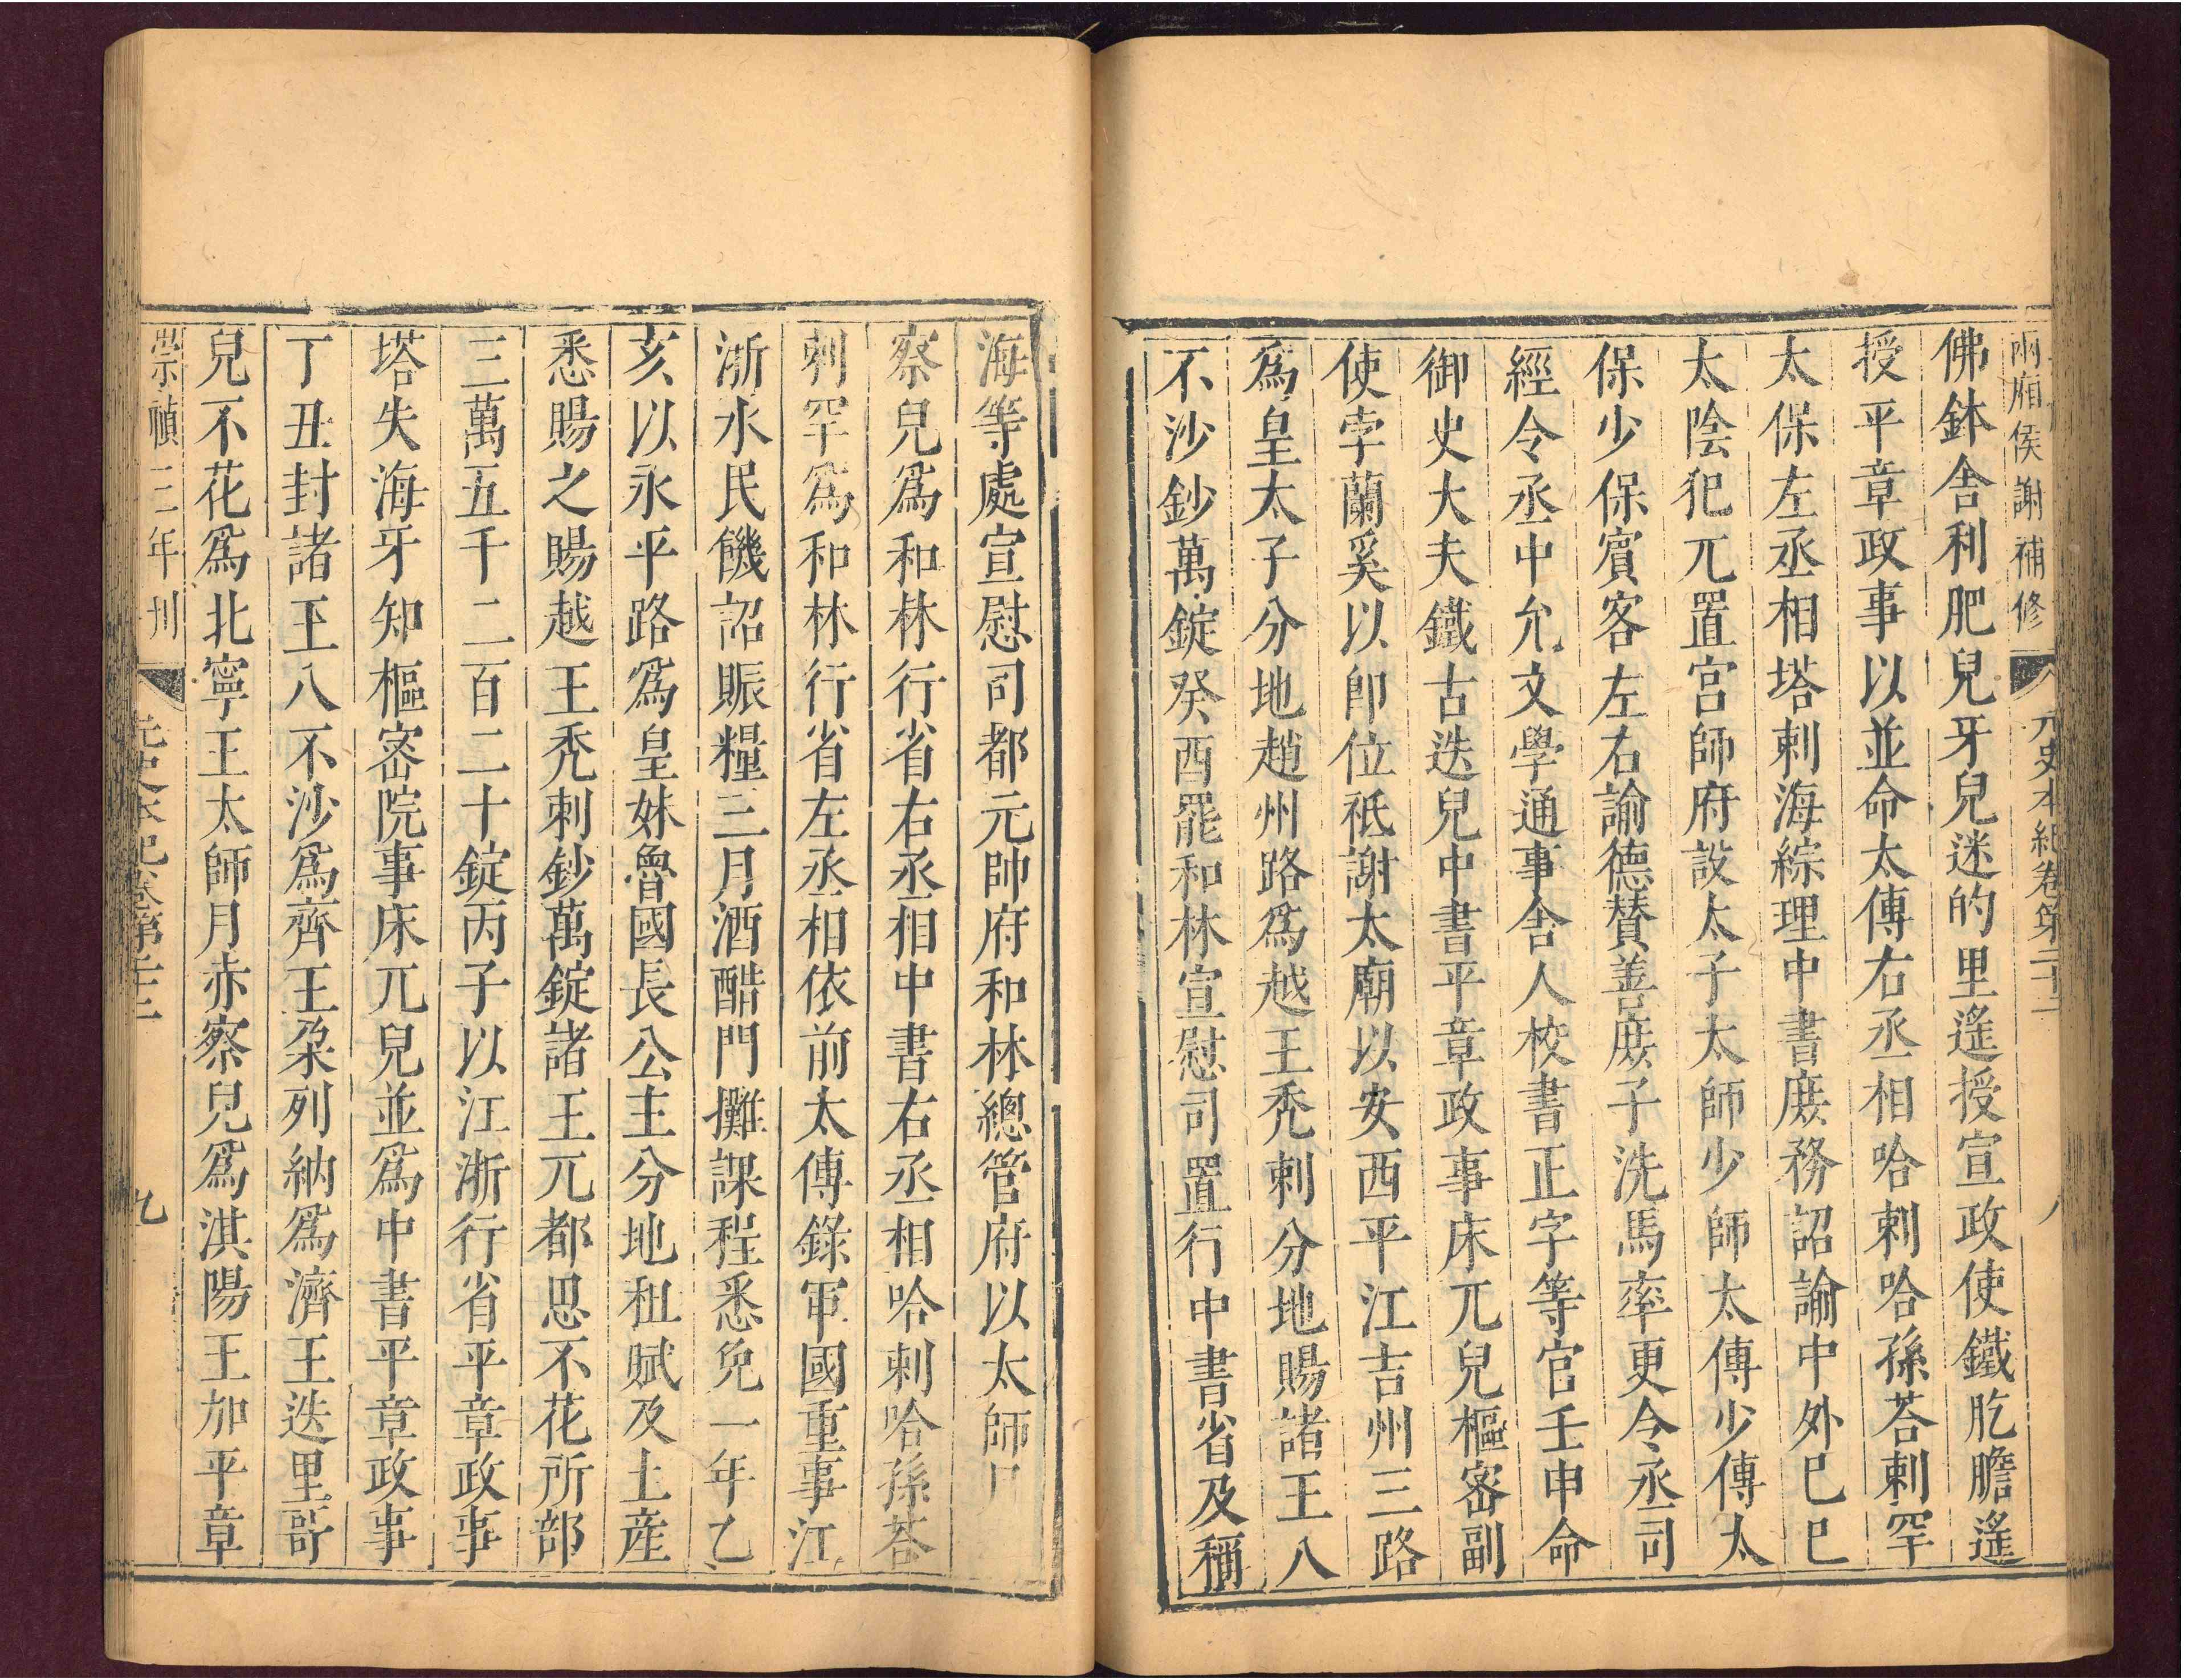 兩廂侯謝補修 元史本紀卷第二十二 八
佛鉢舍利肥兒牙兒迷的里遙授宣政使鐵肐膽遙
授平章政事以並命太傅右丞相哈剌哈孫荅剌罕
太保左丞相塔剌海綜理中書庶務詔諭中外己巳
太陰犯亢置宮師府設太子太師少師太傅少傅太
保少保賓客左右諭德贊善庶子洗馬率更令丞司
經令丞中允文學通事舍人校書正字等官壬申命
御史大夫鐵古迭兒中書平章政事床兀兒樞密副
使孛蘭奚以卽位祗謝太廟以安西平江吉州三路
爲皇太子分地趙州路爲越王秃剌分地賜諸王八
不沙鈔萬錠癸酉罷和林宣慰司置行中書省及稱
海等處宣慰司都元帥府和林總管府以太師月
察兒爲和林行省右丞相中書右丞相哈剌哈孫荅
剌罕爲和林行省左丞相依前太傅錄軍國重事江
浙水民饑詔賑糧三月酒醋門攤課程悉免一年乙
亥以永平路爲皇妹魯國長公主分地租賦及土産
悉賜之賜越王秃剌鈔萬錠諸王兀都思不花所部
三萬五千二百二十錠丙子以江浙行省平章政事
塔失海牙知樞密院事床兀兒並爲中書平章政事
丁丑封諸王八不沙爲齊王朶列納爲濟王迭里哥
兒不花爲北寧王太師月赤察兒爲淇陽王加平章
崇禎三年刊 元史本紀卷第二十二 九